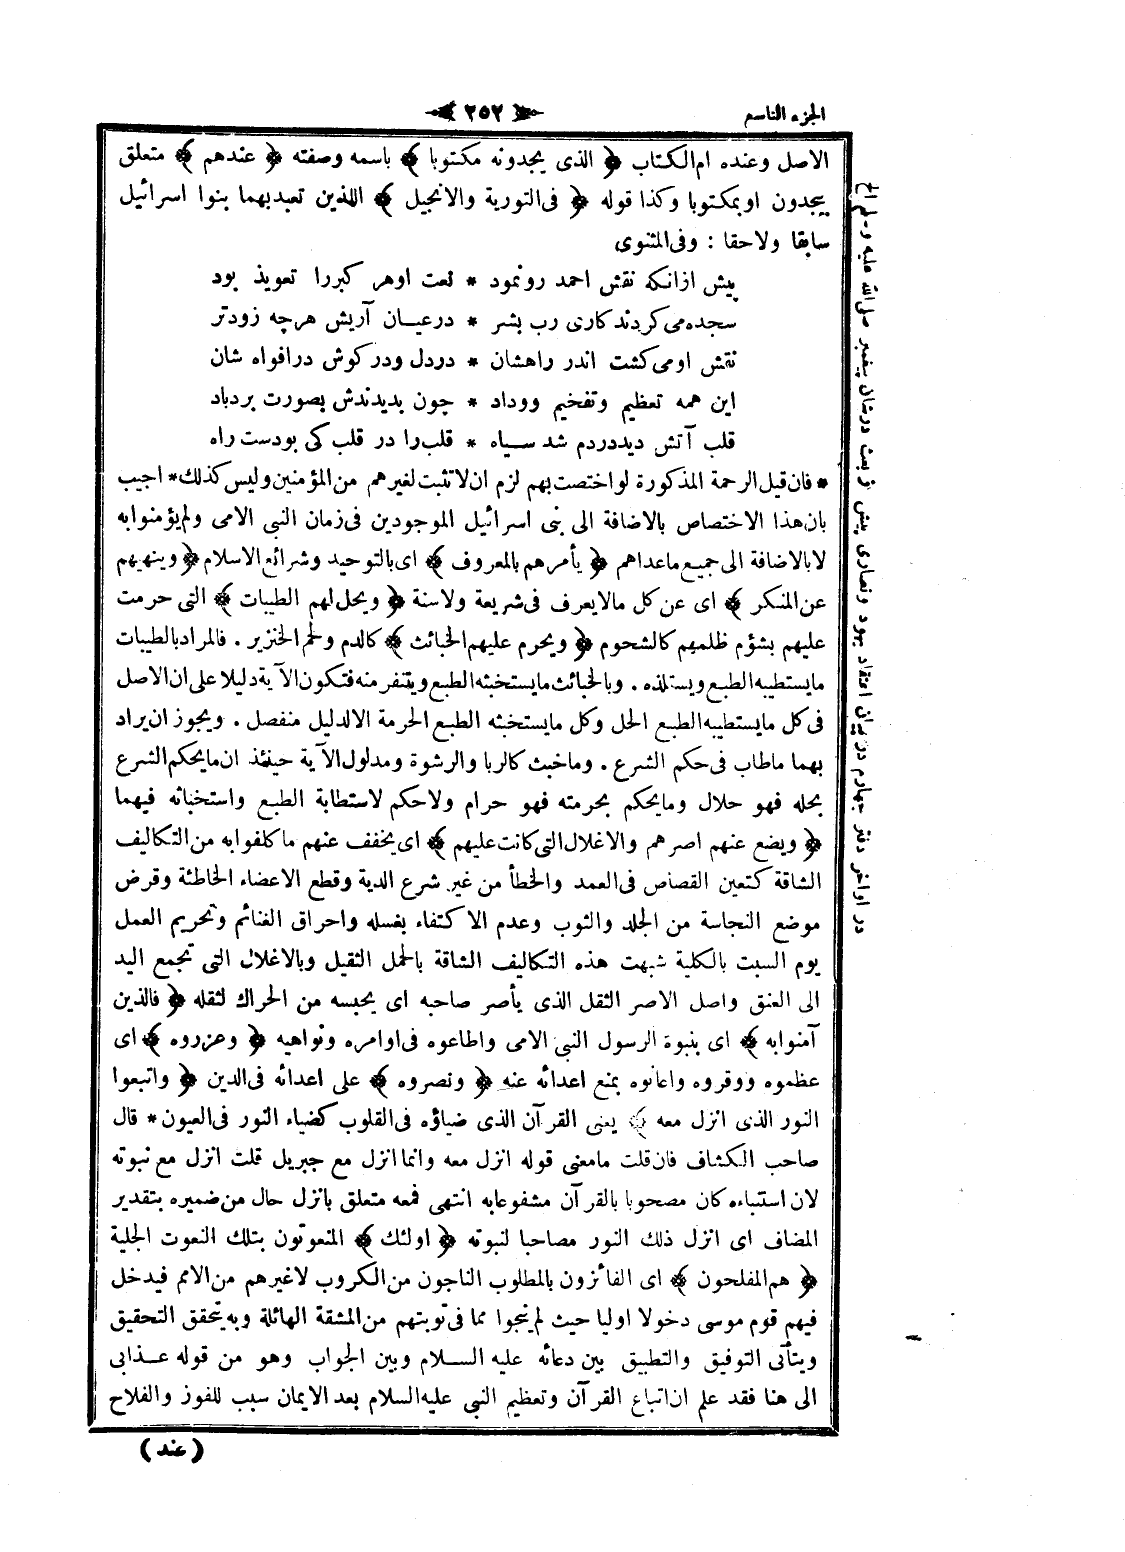 الجزء التاسع
٢٥٢
الاصل وعنده ام الكتاب ﴿ الذى يجدونه مكتوبا ﴾ باسمه وصفته ﴿ عندهم ﴾ متعلق
بيجدون او بمكتوبا وكذا قوله ﴿ فى التورية والانجيل ﴾ اللذين تعبد بهما بنوا اسرائيل
سابقا ولاحقا : وفى المثنوى
پيش ازانكه نقش احمد رو نمود * نعت او هر كبررا تعويذ بود
سجده مى كردند كارى رب بشر * درعيان آريش هرچه زودتر
نقش او مى كشت اندر راهشان * دردل ودر كوش در افواه شان
اين همه تعظيم وتفخيم ووداد * چون بديدندش بصورت برد باد
قلب آتش ديد دردم شد سياه * قلب را در قلب كى بودست راه
* فان قيل الرحمة المذكورة لو اختصت بهم لزم ان لا تثبت لغيرهم من المؤمنين وليس كذلك * اجيب
بان هذا الاختصاص بالاضافة الى بنى اسرائيل الموجودين فى زمان النبى الامى ولم يؤمنوا به
لا بالاضافة الى جميع ماعداهم ﴿ يأمرهم بالمعروف ﴾ اى بالتوحيد وشرائع الاسلام ﴿ وينهيهم
عن المنكر ﴾ اى عن كل مالا يعرف فى شريعة ولاسنة ﴿ ويحل لهم الطيبات ﴾ التى حرمت
عليهم بشؤم ظلمهم كالشحوم ﴿ ويحرم عليهم الخبائث ﴾ كالدم ولحم الخنزير . فالمراد بالطيبات
مايستطيبه الطبع ويستلذه . وبالخبائث مايستخبثه الطبع ويتنفر منه فتكون الآية دليلا على ان الاصل
فى كل مايستطيبه الطبع الحل وكل مايستخبثه الطبع الحرمة الا لدليل منفصل . ويجوز ان يراد
بهما ماطاب فى حكم الشرع . وماخبث كالربا والرشوة ومدلول الآية حينئذ ان مايحكم الشرع
بحله فهو حلال ومايحكم بحرمته فهو حرام ولاحكم لاستطابة الطبع واستخبائه فيهما
﴿ ويضع عنهم اصرهم والاغلال التى كانت عليهم ﴾ اى يخفف عنهم ماكلفوا به من التكاليف
الشاقة كتعين القصاص فى العمد والخطأ من غير شرع الدية وقطع الاعضاء الخاطئة وقرض
موضع النجاسة من الجلد والثوب وعدم الاكتفاء بغسله واحراق الغنائم وتحريم العمل
يوم السبت بالكلية شبهت هذه التكاليف الشاقة بالحمل الثقيل وبالاغلال التى تجمع اليد
الى العنق واصل الاصر الثقل الذى يأصر صاحبه اى يحبسه من الحراك لثقله ﴿ فالذين
آمنوا به ﴾ اى بنبوة الرسول النبى الامى واطاعوه فى اوامره ونواهيه ﴿ وعزروه ﴾ اى
عظموه ووقروه واعانوه بمنع اعدائه عنه ﴿ ونصروه ﴾ على اعدائه فى الدين ﴿ واتبعوا
النور الذى انزل معه ﴾ يعنى القرآن الذى ضياؤه فى القلوب كضياء النور فى العيون * قال
صاحب الكشاف فان قلت مامعنى قوله انزل معه وانما انزل مع جبريل قلت انزل مع نبوته
لان استنباءه كان مصحوبا بالقرآن مشفوعا به انتهى فمعه متعلق بانزل حال من ضميره بتقدير
المضاف اى انزل ذلك النور مصاحبا لنبوته ﴿ اولئك ﴾ المنعوتون بتلك النعوت الجلية
﴿ هم المفلحون ﴾ اى الفائزون بالمطلوب الناجون من الكروب لاغيرهم من الامم فيدخل
فيهم قوم موسى دخولا اوليا حيث لم ينجوا مما فى توبتهم من المشقة الهائلة وبه يتحقق التحقيق
ويتأتى التوفيق والتطبيق بين دعائه عليه السلام وبين الجواب وهو من قوله عذابى
الى هنا فقد علم ان اتباع القرآن وتعظيم النبى عليه السلام بعد الايمان سبب للفوز والفلاح
( عند )
در اواخر دفتر چهارم در بيان اعتقاد يهود ونصارى پيش از بعث درشان پيغمبر صلى الله عليه وسلم الخ